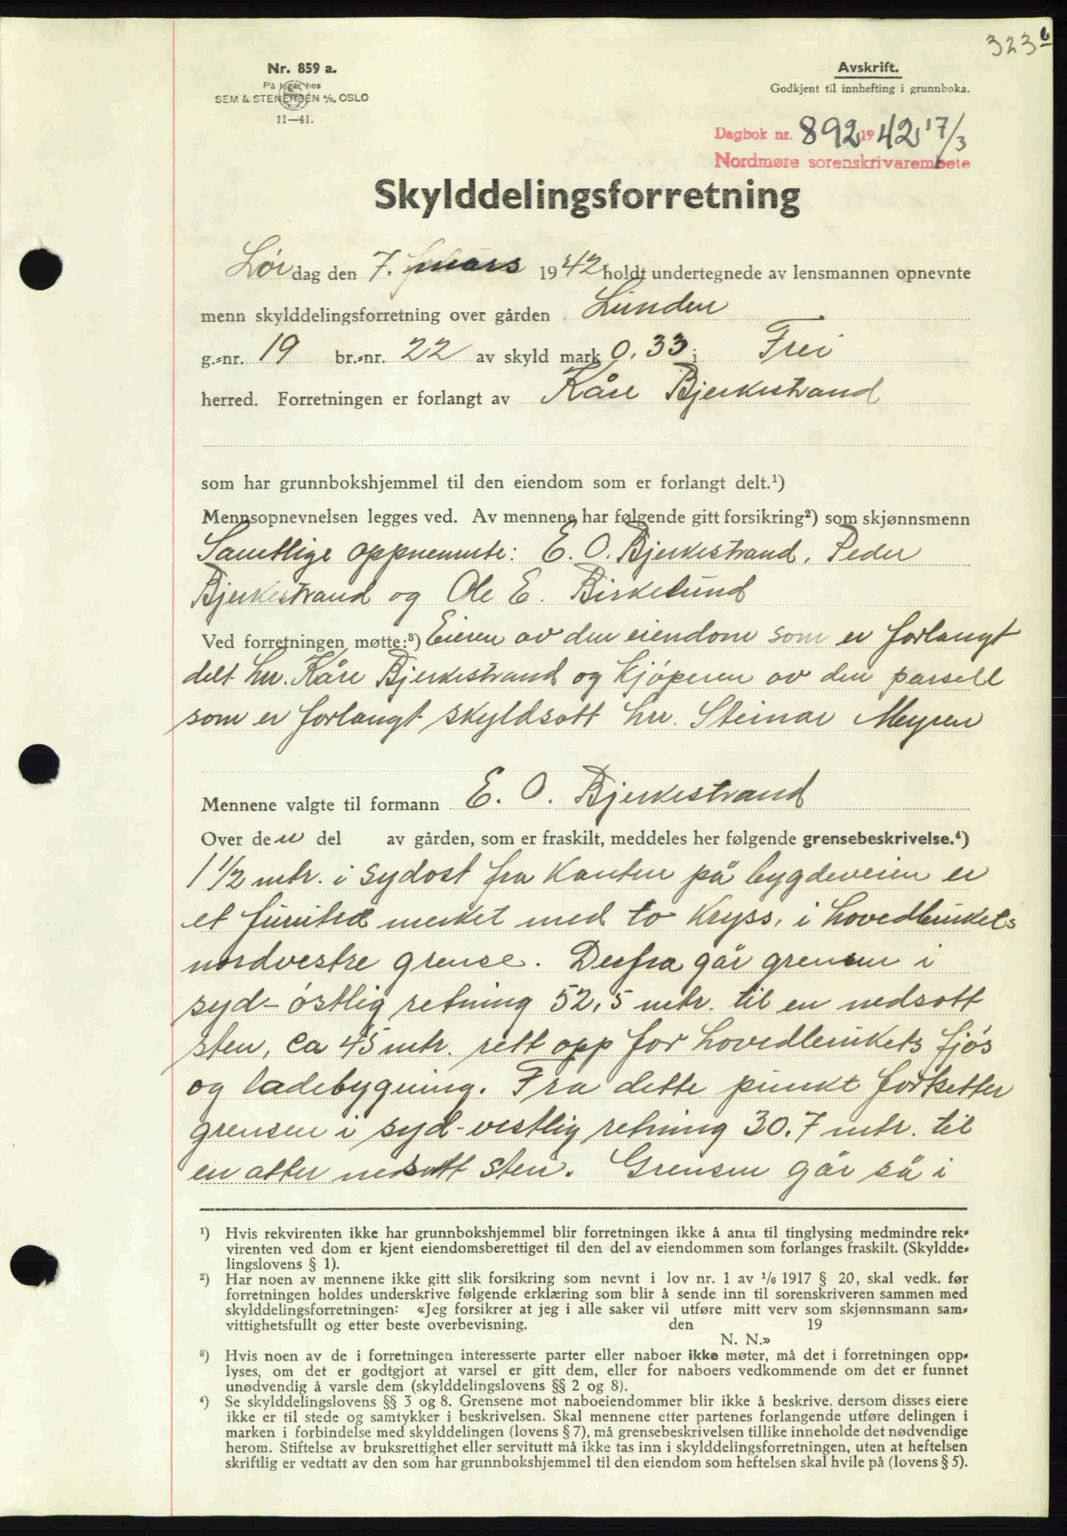 323 b
Nr. 859 a.
På lager hos
SEM & STENERSEN A/S, OSLO
11—41.
Avskrift.
Godkjent til innhefting i grunnboka.
Dagbok nr. 892 1942 17/3
Nordmøre sorenskrivarembete
Skylddelingsforretning
Lør dag den 7. mars 1942 holdt undertegnede av lensmannen opnevnte
menn skylddelingsforretning over gården Lunden
g.-nr. 19 br.-nr. 22 av skyld mark 0,33 i Frei
herred. Forretningen er forlangt av Kåre Bjerkestrand
som har grunnbokshjemmel til den eiendom som er forlangt delt.¹)
Mennsopnevnelsen legges ved. Av mennene har følgende gitt forsikring²) som skjønnsmenn
Samtlige oppnevnte: E. O. Bjerkestrand, Peder
Bjerkestrand og Ole E. Birkelund
Ved forretningen møtte:³) Eieren av den eiendom som er forlangt
delt hr. Kåre Bjerkestrand og kjøperen av den parsell
som er forlangt skyldsatt hr. Steinar Myren
Mennene valgte til formann E. O. Bjerkestrand
Over den del av gården, som er fraskilt, meddeles her følgende grensebeskrivelse.⁴)
1 1/2 mtr. i sydost fra kanten på bygdeveien er
et furutre merket med to kryss, i hovedbrukets
nordvestre grense. Derfra går grensen i
syd-östlig retning 52,5 mtr. til en nedsatt
sten, ca 45 mtr. rett opp for hovedbrukets fjös
og ladebygning. Fra dette punkt fortsetter
grensen i syd-vestlig retning 30.7 mtr. til
en atter nedsatt sten. Grensen går så i
¹) Hvis rekvirenten ikke har grunnbokshjemmel blir forretningen ikke å anta til tinglysing medmindre rek-
virenten ved dom er kjent eiendomsberettiget til den del av eiendommen som forlanges fraskilt. (Skyldde-
lingslovens § 1).
²) Har noen av mennene ikke gitt slik forsikring som nevnt i lov nr. 1 av 1/6 1917 § 20, skal vedk. før
forretningen holdes underskrive følgende erklæring som blir å sende inn til sorenskriveren sammen med
skylddelingsforretningen: «Jeg forsikrer at jeg i alle saker vil utføre mitt verv som skjønnsmann sam-
vittighetsfullt og etter beste overbevisning. den 19
N. N.»
³) Hvis noen av de i forretningen interesserte parter eller naboer ikke møter, må det i forretningen opp-
lyses, om det er godtgjort at varsel er gitt dem, eller for naboers vedkommende om det er funnet
unødvendig å varsle dem (skylddelingslovens §§ 2 og 8).
⁴) Se skylddelingslovens §§ 3 og 8. Grensene mot naboeiendommer blir ikke å beskrive, dersom disses eiere
ikke er til stede og samtykker i beskrivelsen. Skal mennene etter partenes forlangende utføre delingen i
marken i forbindelse med skylddelingen (lovens § 7), må grensebeskrivelsen tillike inneholde det nødvendige
herom. Stiftelse av bruksrettighet eller servitutt må ikke tas inn i skylddelingsforretningen, uten at heftelsen
skriftlig er vedtatt av den som har grunnbokshjemmel til den eiendom som heftelsen skal hvile på (lovens § 5).